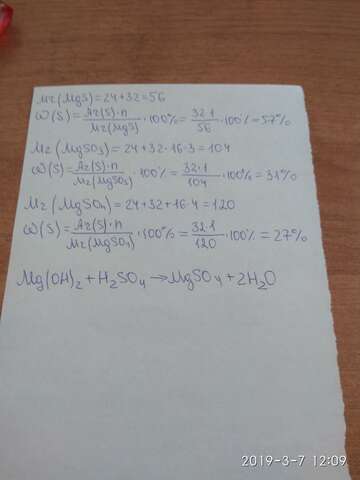 Mr(MgS)=24+32=56
ω(S)=Ar(S)·n/Mr(MgS)·100%=32·1/56·100%=57%
Mr(MgSO3)=24+32·16·3=104
ω(S)=Ar(S)·n/Mr(MgSO3)·100%=32·1/104·100%=31%
Mr(MgSO4)=24+32+16·4=120
ω(S)=Ar(S)·n/Mr(MgSO4)·100%=32·1/120·100%=27%
Mg(OH)2+H2SO4→MgSO4+2H2O
2019-3-7 12:09